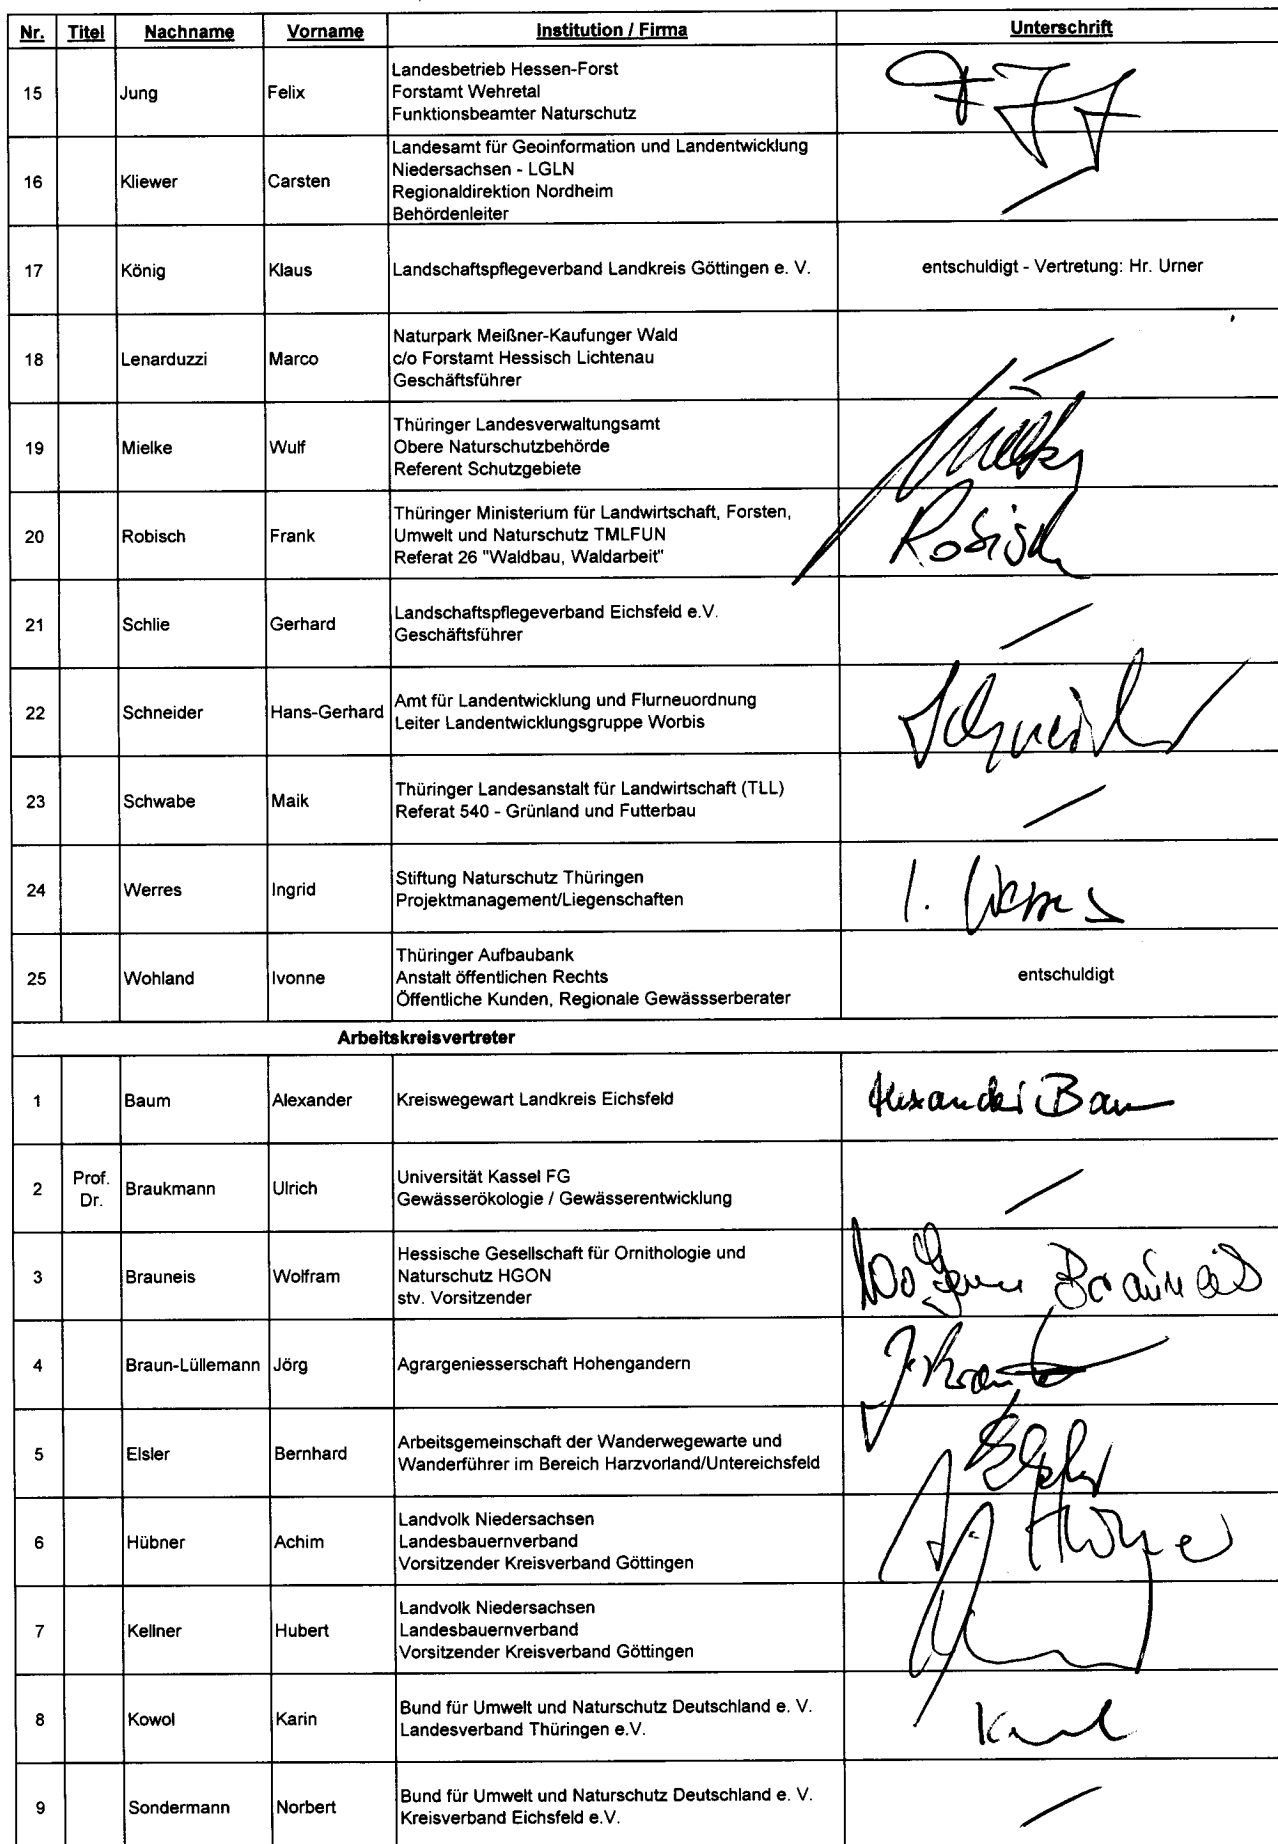 Nr. Titel Nachname Vorname Institution / Firma Unterschrift
15 Jung Felix Landesbetrieb Hessen-Forst
Forstamt Wehretal
Funktionsbeamter Naturschutz
16 Kliewer Carsten Landesamt für Geoinformation und Landentwicklung
Niedersachsen - LGLN
Regionaldirektion Nordheim
Behördenleiter
17 König Klaus Landschaftspflegeverband Landkreis Göttingen e. V. entschuldigt - Vertretung: Hr. Urner
18 Lenarduzzi Marco Naturpark Meißner-Kaufunger Wald
c/o Forstamt Hessisch Lichtenau
Geschäftsführer
19 Mielke Wulf Thüringer Landesverwaltungsamt
Obere Naturschutzbehörde
Referent Schutzgebiete
20 Robisch Frank Thüringer Ministerium für Landwirtschaft, Forsten,
Umwelt und Naturschutz TMLFUN
Referat 26 "Waldbau, Waldarbeit"
Robisch
21 Schlie Gerhard Landschaftspflegeverband Eichsfeld e.V.
Geschäftsführer
22 Schneider Hans-Gerhard Amt für Landentwicklung und Flurneuordnung
Leiter Landentwicklungsgruppe Worbis
Schneider
23 Schwabe Maik Thüringer Landesanstalt für Landwirtschaft (TLL)
Referat 540 - Grünland und Futterbau
24 Werres Ingrid Stiftung Naturschutz Thüringen
Projektmanagement/Liegenschaften
I. Werres
25 Wohland Ivonne Thüringer Aufbaubank
Anstalt öffentlichen Rechts entschuldigt
Öffentliche Kunden, Regionale Gewässserberater
Arbeitskreisvertreter
1 Baum Alexander Kreiswegewart Landkreis Eichsfeld Alexander Baum
2 Prof. Dr. Braukmann Ulrich Universität Kassel FG
Gewässerökologie / Gewässerentwicklung
3 Brauneis Wolfram Hessische Gesellschaft für Ornithologie und
Naturschutz HGON
stv. Vorsitzender
Wolfram Brauneis
4 Braun-Lüllemann Jörg Agrargeniesserschaft Hohengandern
5 Elsler Bernhard Arbeitsgemeinschaft der Wanderwegewarte und
Wanderführer im Bereich Harzvorland/Untereichsfeld
6 Hübner Achim Landvolk Niedersachsen
Landesbauernverband
Vorsitzender Kreisverband Göttingen
7 Kellner Hubert Landvolk Niedersachsen
Landesbauernverband
Vorsitzender Kreisverband Göttingen
8 Kowol Karin Bund für Umwelt und Naturschutz Deutschland e. V.
Landesverband Thüringen e.V.
9 Sondermann Norbert Bund für Umwelt und Naturschutz Deutschland e. V.
Kreisverband Eichsfeld e.V.